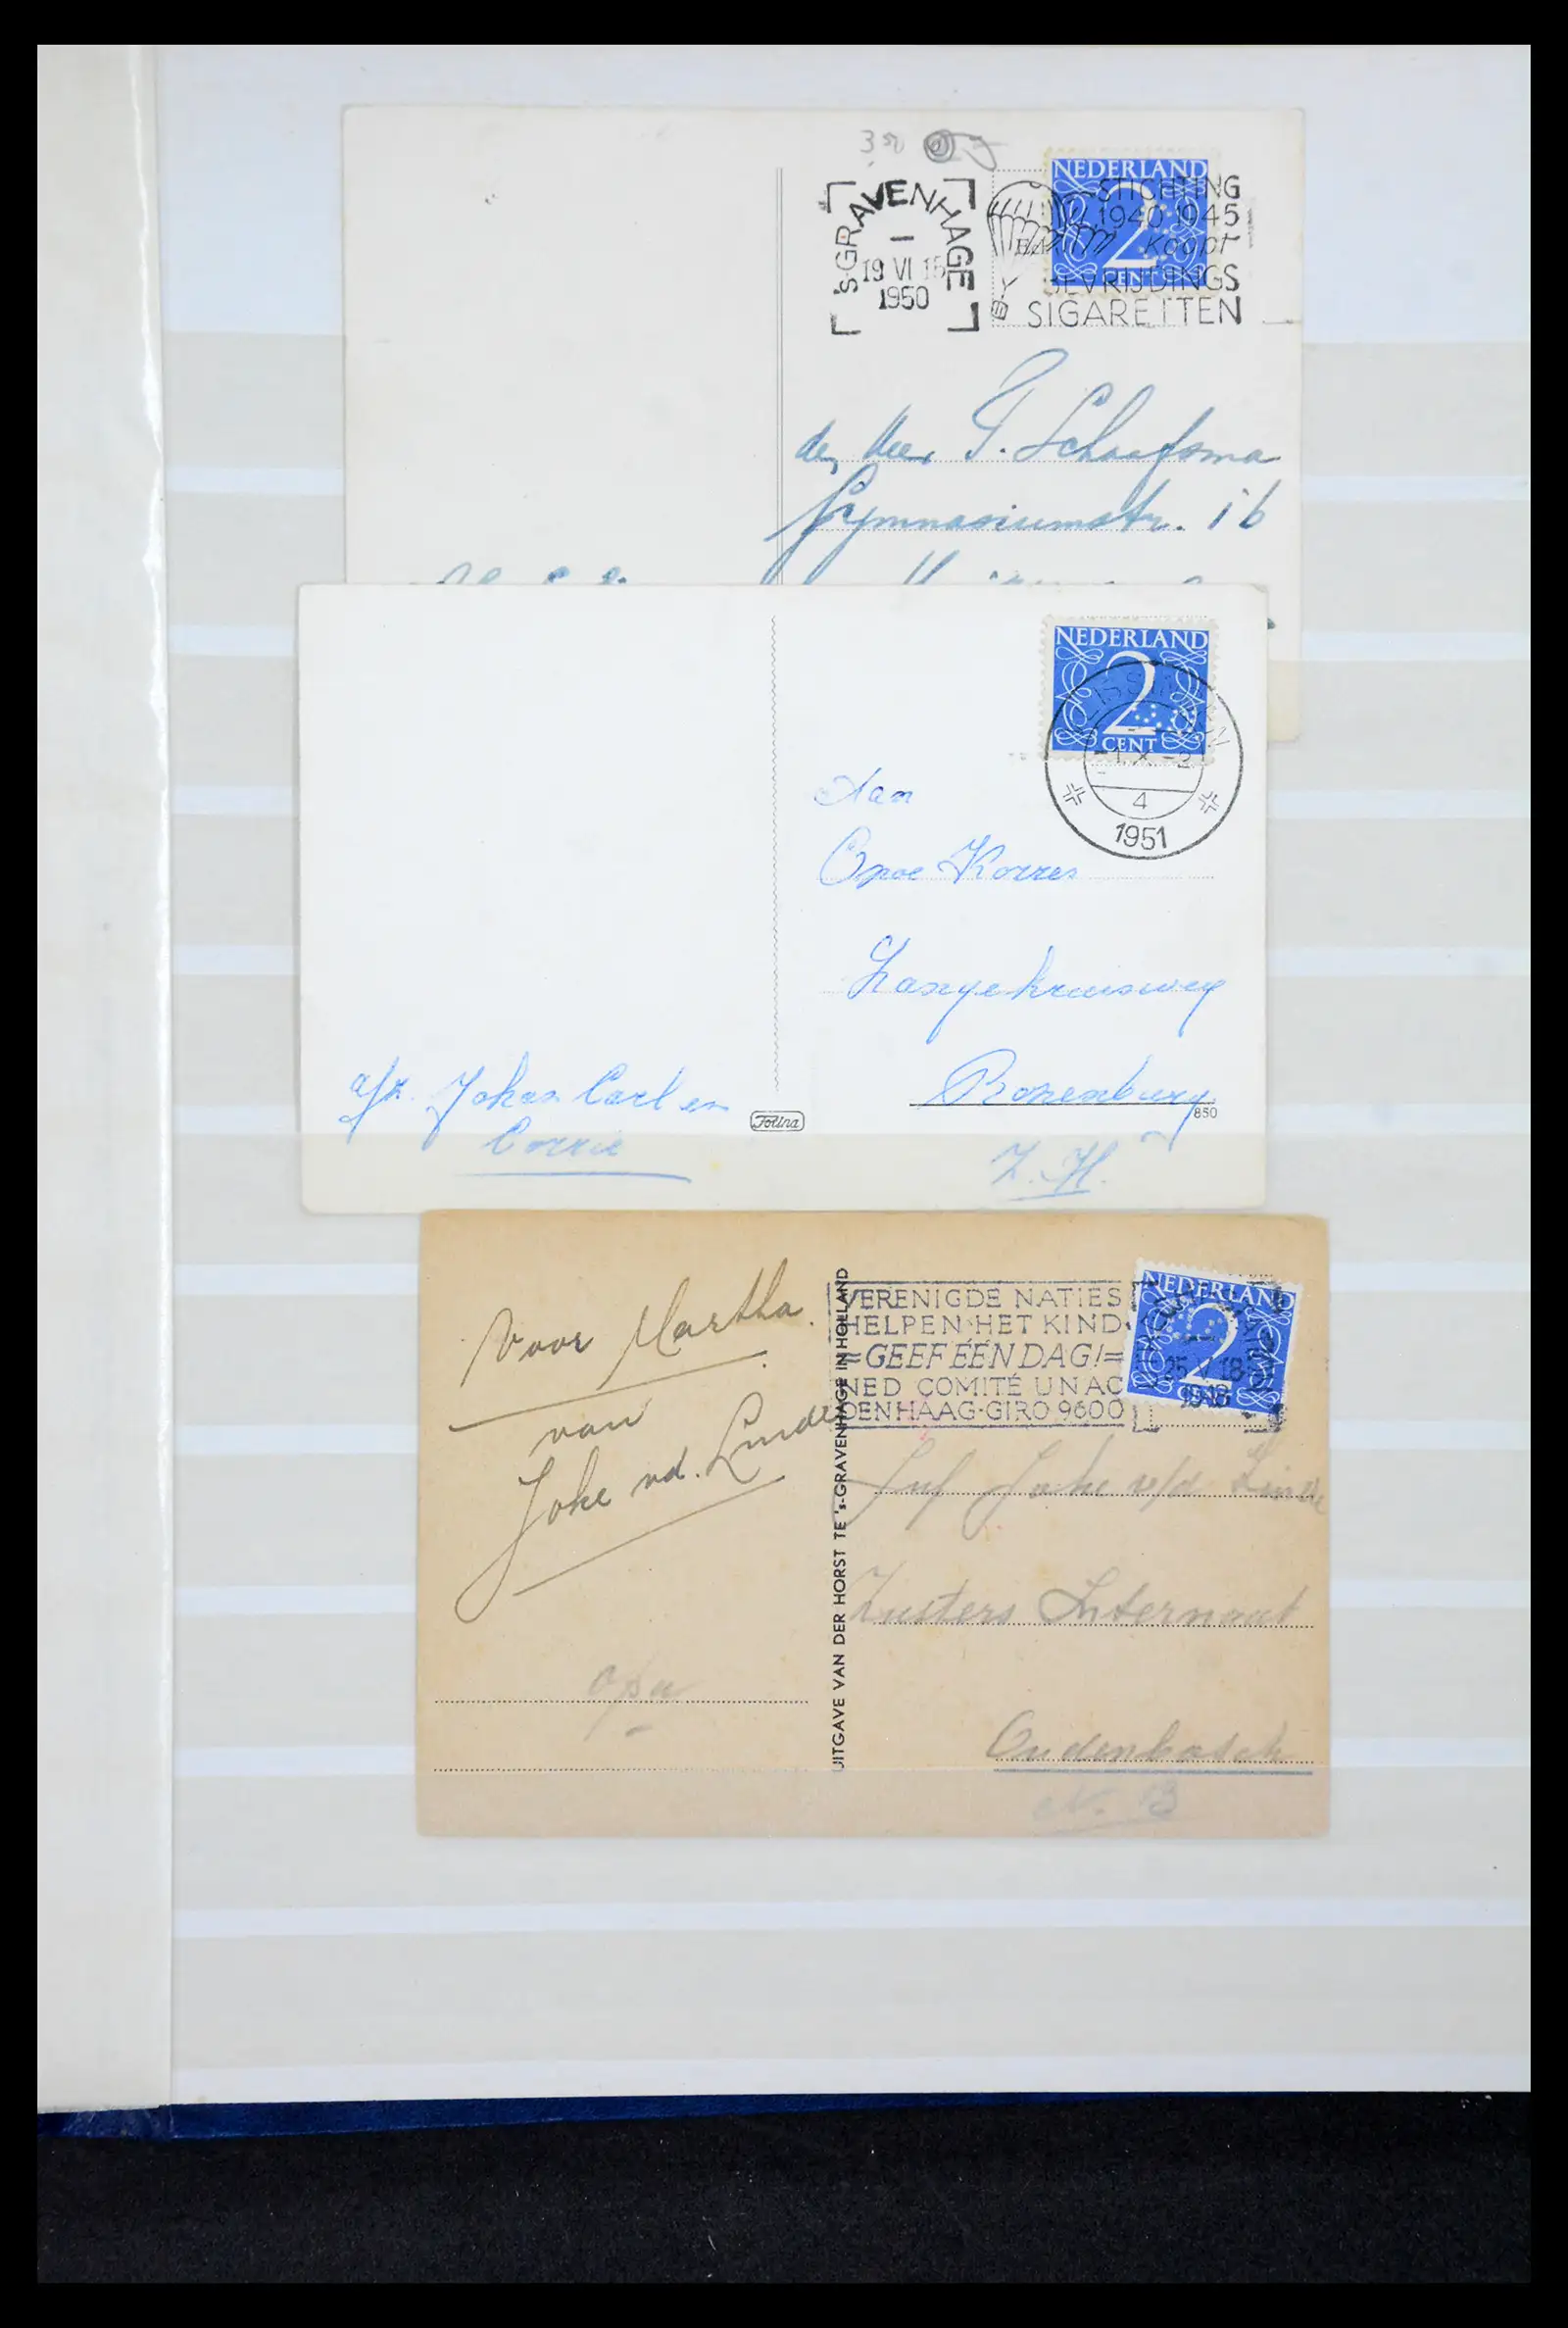 3 50
's-GRAVENHAGE
19 VI 15
1950
NEDERLAND
2
CENT
STICHTING
1940 1945
Koopt
BEVRIJDINGS
SIGARETTEN
T. Schaafsma
Gymnasiumstr. 16
NEDERLAND
2
CENT
1 X
4
1951
Aan
Opoe Korres
Langekruisweg
Rozenburg
850
Z.H.
afz. Johan Carl en
Corrie
Voor Martha.
van
Joke vd. Linden
opa
UITGAVE VAN DER HORST TE 's-GRAVENHAGE IN HOLLAND
VERENIGDE NATIES
HELPEN HET KIND
=GEEF ÉÉN DAG!=
NED COMITÉ UNAC
DENHAAG·GIRO 9600
NEDERLAND
2
25 V 18
1948
Juf Joke v/d Linde
Zusters Internaat
Oudenbosch
N. B